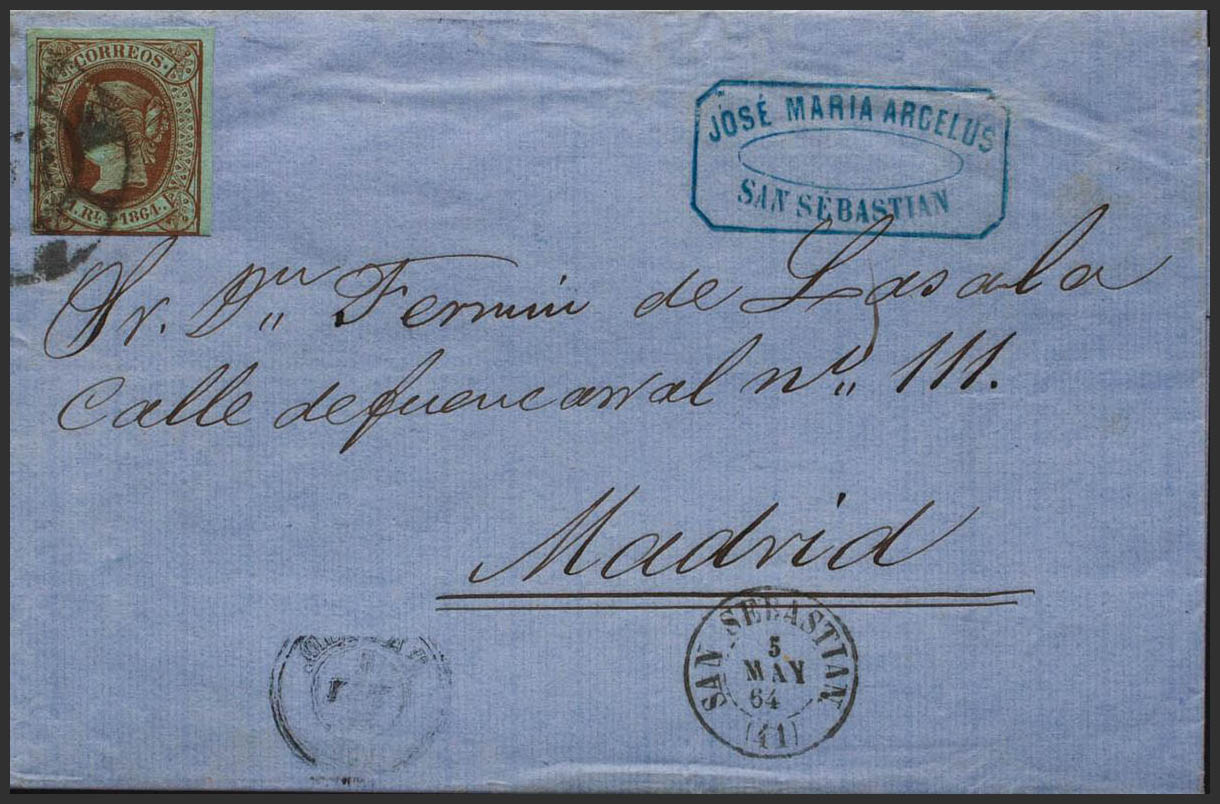 CORREOS. 1
1. Rl. 1864. 1
JOSÉ MARIA ARCELUS
SAN SEBASTIAN
Sr. Dn Fermin de Lasala
Calle de fuencarral nº 111.
Madrid
SAN SEBASTIAN
5
MAY
64
(41)